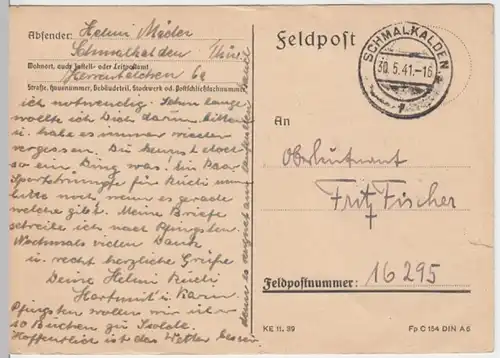 Absender: Helmi Mäder
Schmalkalden Thür.
Wohnort, auch Zustell- oder Leitpostamt
Herrentalchen 6a
Straße, Hausnummer, Gebäudeteil, Stockwerk od. Postschließfachnummer
ich notwendig. Schon lange
wollte ich Dich darum bitten
u. habe es immer wieder
vergessen. Du kennst doch
so ein Ding was! Ein Paar
Sportstrümpfe für
bitte noch, wenn es gerade
welche gibt. Meine Briefe
schreibe ich nach Pfingsten.
Nochmals vielen Dank
u. recht herzliche Grüße
Deine Helmi
Hartmut u. Karin
Pfingsten wollen wir
so Buchen zu
Hoffentlich ist das Wetter besser
denn es regnet am laufenden Band
Feldpost
SCHMALKALDEN
30.5.41.-16
An
Oberleutnant
Fritz Fischer
Feldpostnummer: 16 295
KE 11. 39
Fp C 154 DIN A 6